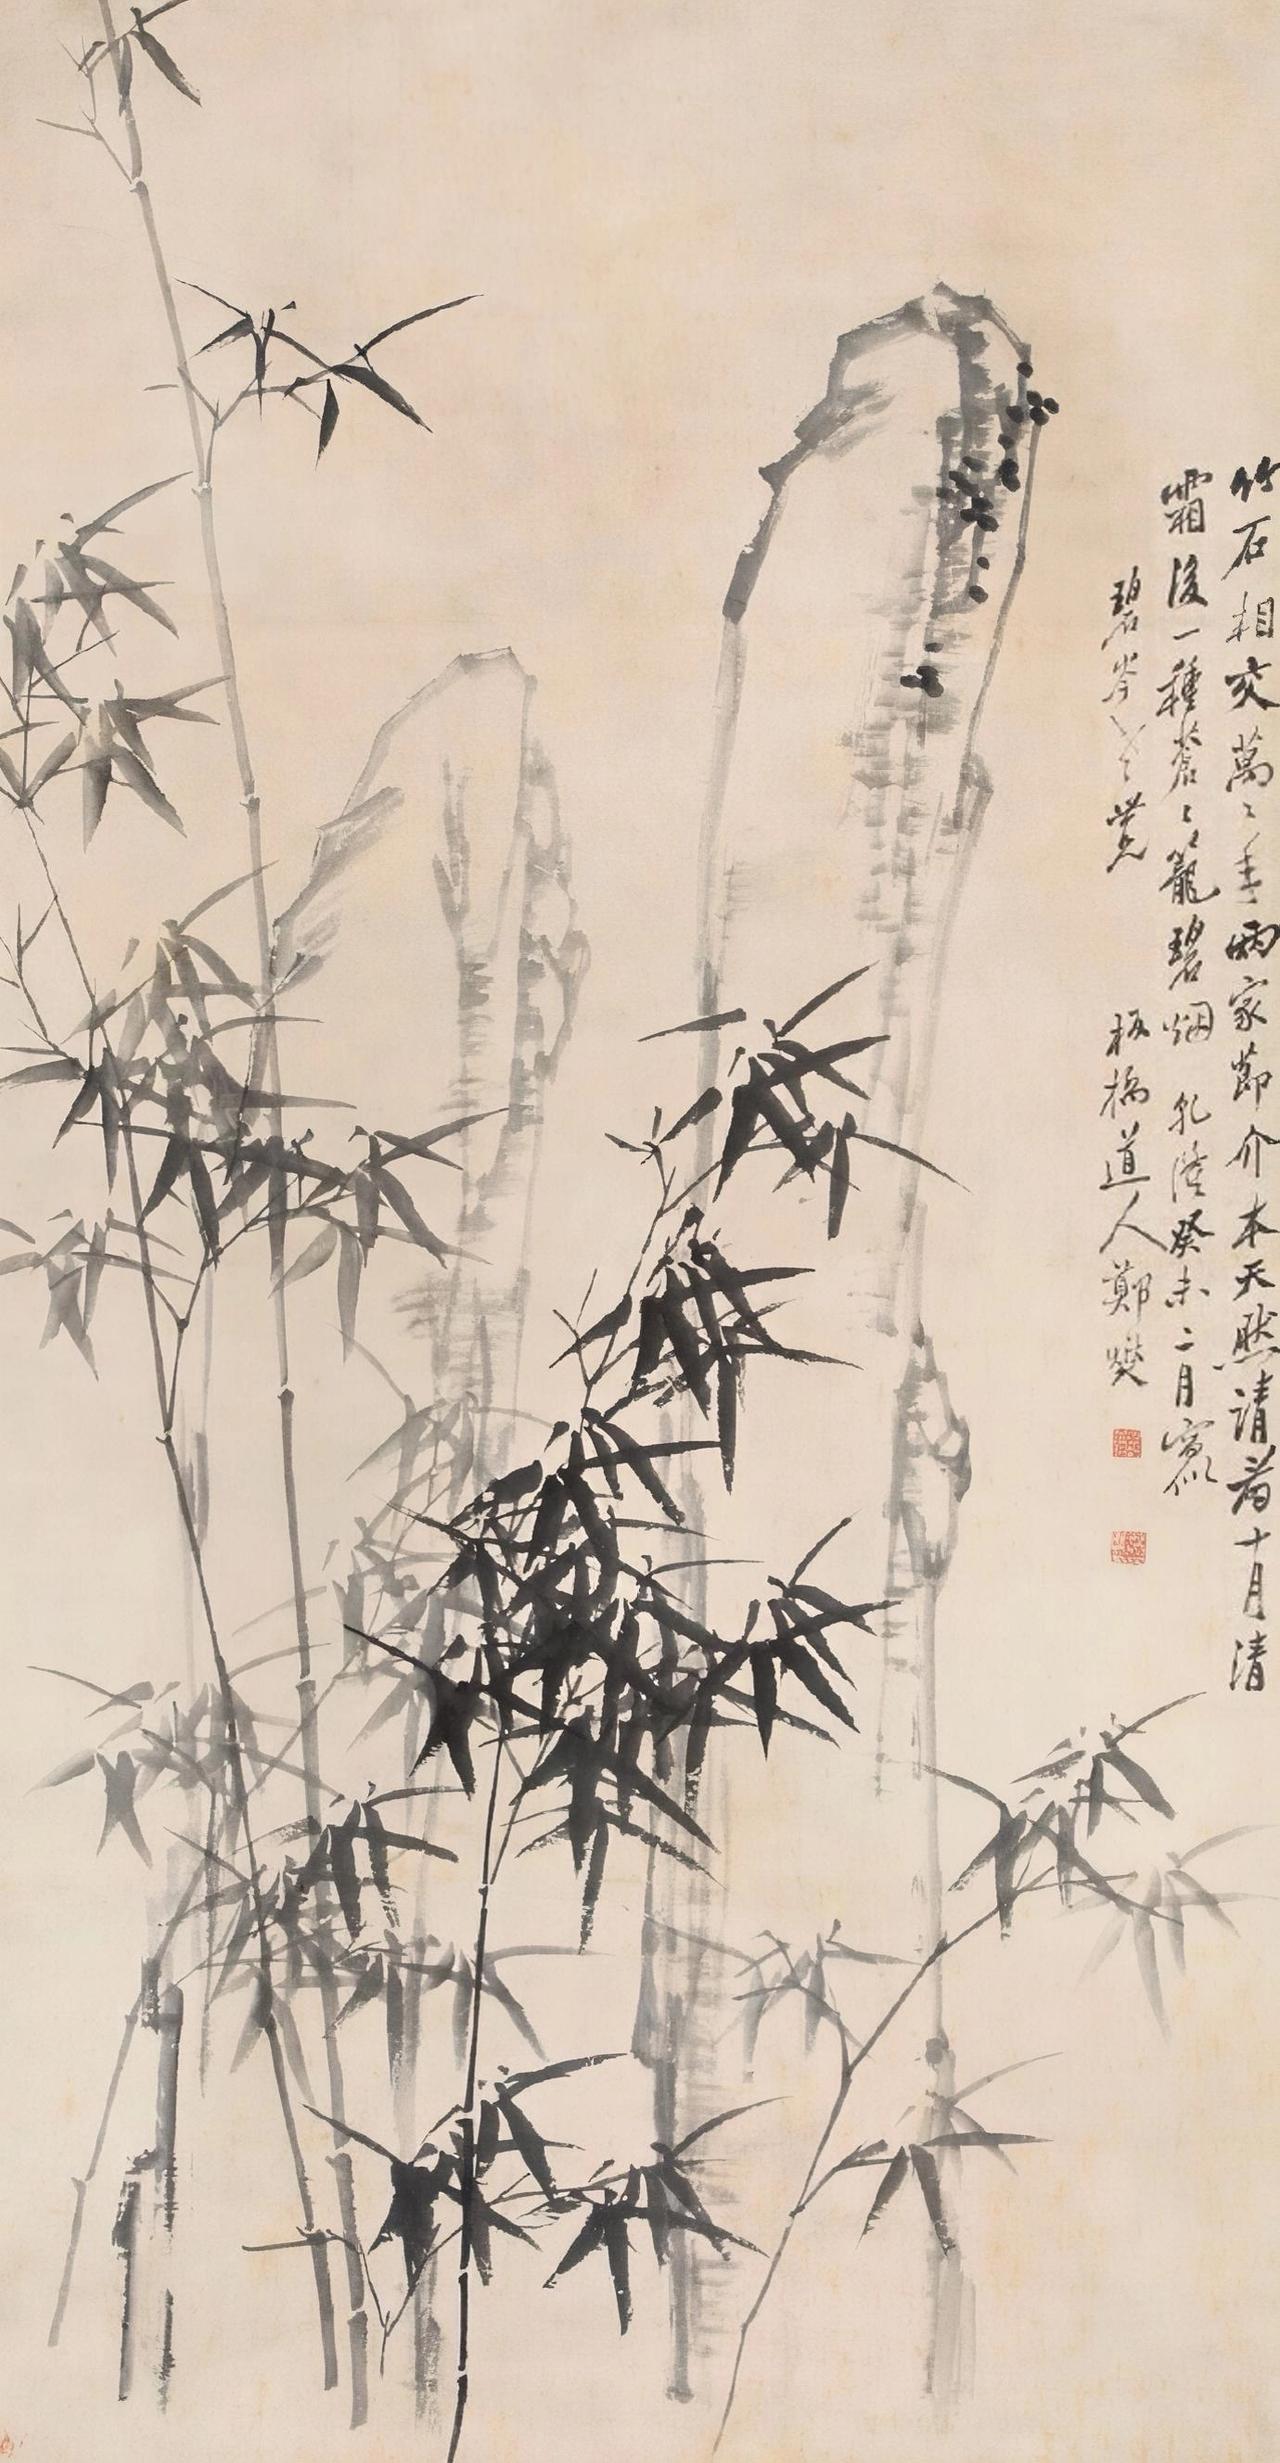 竹石相交萬〻年兩家節介本天然請看十月清
霜後一種蒼〻籠碧烟 乾隆癸未二月寫似
碧岑 板橋道人鄭燮